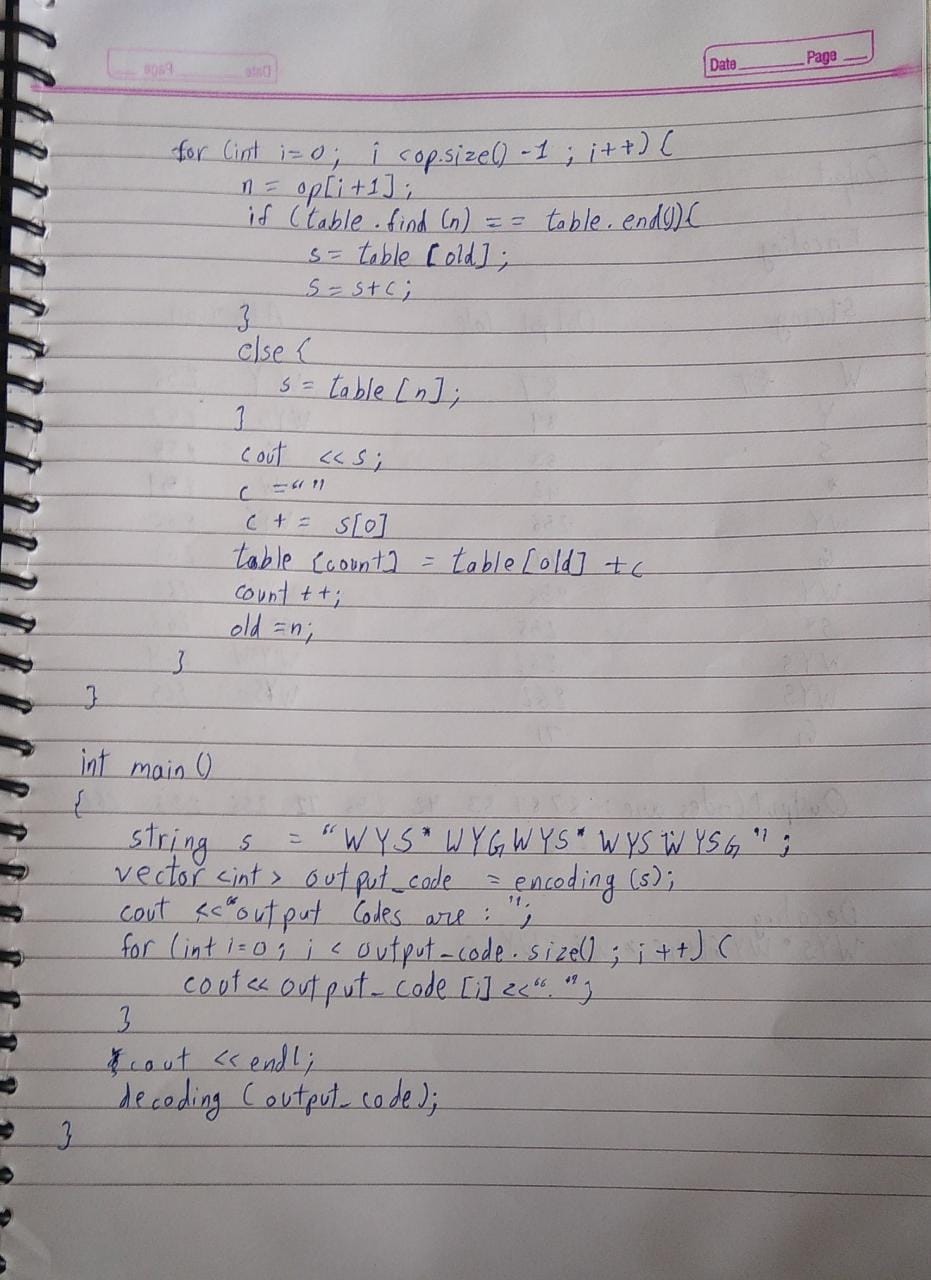 Date Page
for (int i=0; i < op.size() -1 ; i++) {
n = op[i+1];
if (table.find (n) == table.end()) {
s = table [old];
s = s+c;
}
else {
s = table [n];
}
cout << s;
c = “ ”
c += s[0]
table [count] = table [old] +c
count ++;
old =n;
}
}
int main ()
{
string s = “WYS* WYGWYS* WYSWYSG”;
vector <int> output_code = encoding (s);
cout << “output Codes are : ”;
for (int i=0; i < output_code.size() ; i++) {
cout << output_code [i] << “ ”;
}
cout << endl;
decoding (output_code);
}